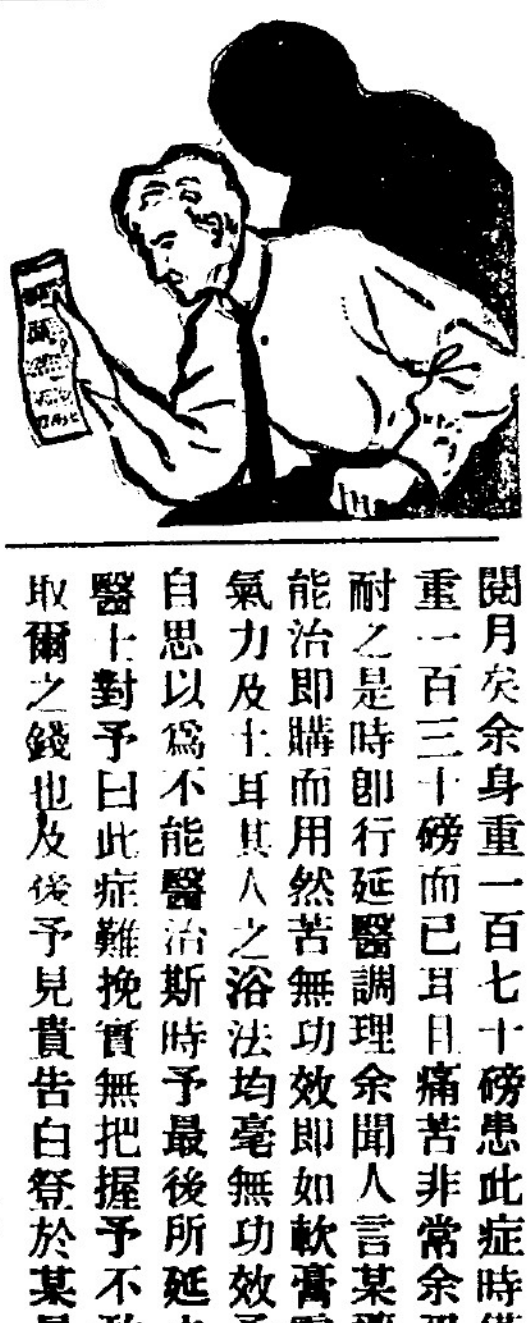 閱月矣余身重一百七十磅患此症時僅
重一百三十磅而已耳且痛苦非常余
耐之是時卽行延醫調理余聞人言某
能治即購而用然苦無功效即如軟膏
氣力及土耳其人之浴法均毫無功效予
自思以爲不能醫治斯時予最後所延
醫士對予曰此症難挽實無把握予不
取爾之錢也及後予見貴告白登於某